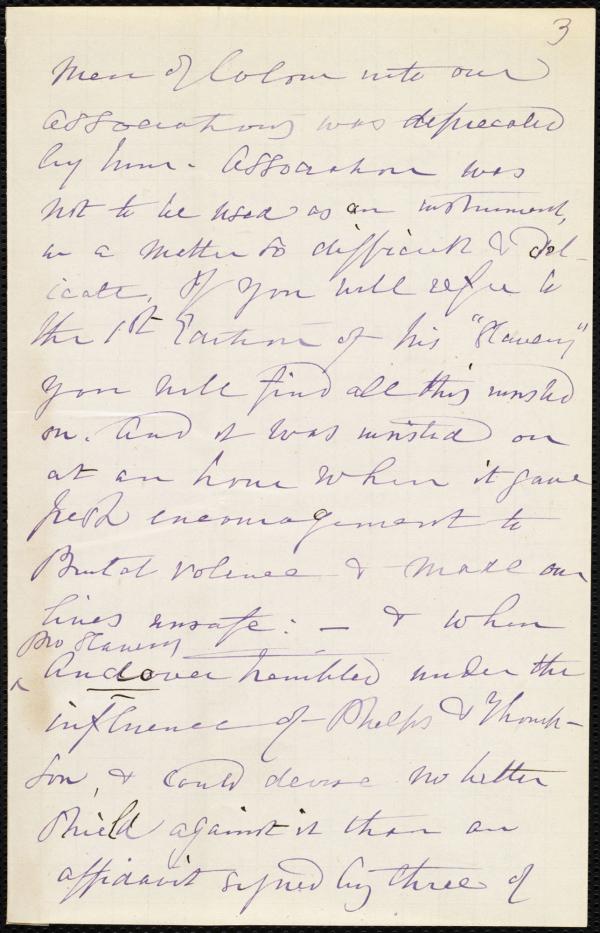 3
Men of Colour into our
Associations was deprecated
by him. Association was
not to be used as an instrument,
in a matter so difficult & del-
icate. If you will refer to
the 1st Edition of his "Slavery"
you will find all this insisted
on. And it was insisted on
at an hour when it gave
fresh encouragement to
Brutal violence & made our
lives unsafe: — & when
Pro Slavery
^ Andover trembled under the
influence of Phelps & Thomp-
son, & could devise no better
shield against it than an
affidavit signed by three of